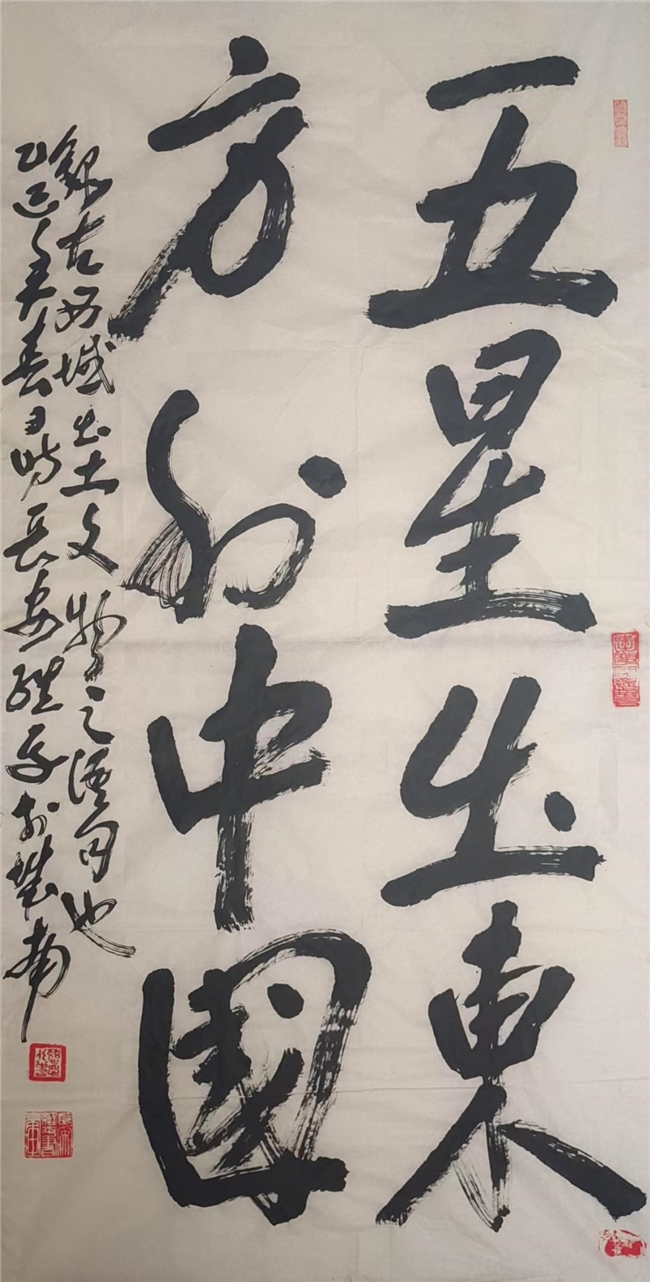 五星出東
方利中國
錄古西域出土文物之語句也
乙巳美春月時長安於樊南